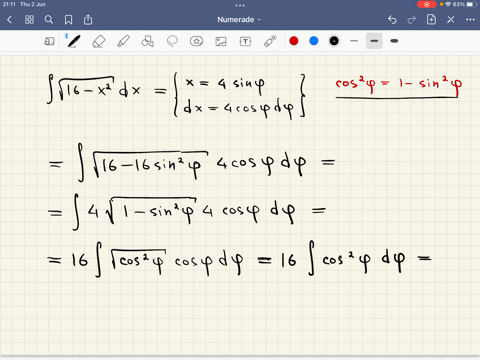 21:11 Thu 2 Jun 63%
Numerade
∫√(16 − x²) dx = { x = 4 sinφ cos²φ = 1 − sin²φ
dx = 4 cosφ dφ }
= ∫ √(16 − 16 sin²φ) 4 cosφ dφ =
= ∫ 4 √(1 − sin²φ) 4 cosφ dφ =
= 16 ∫ √(cos²φ) cosφ dφ = 16 ∫ cos²φ dφ =